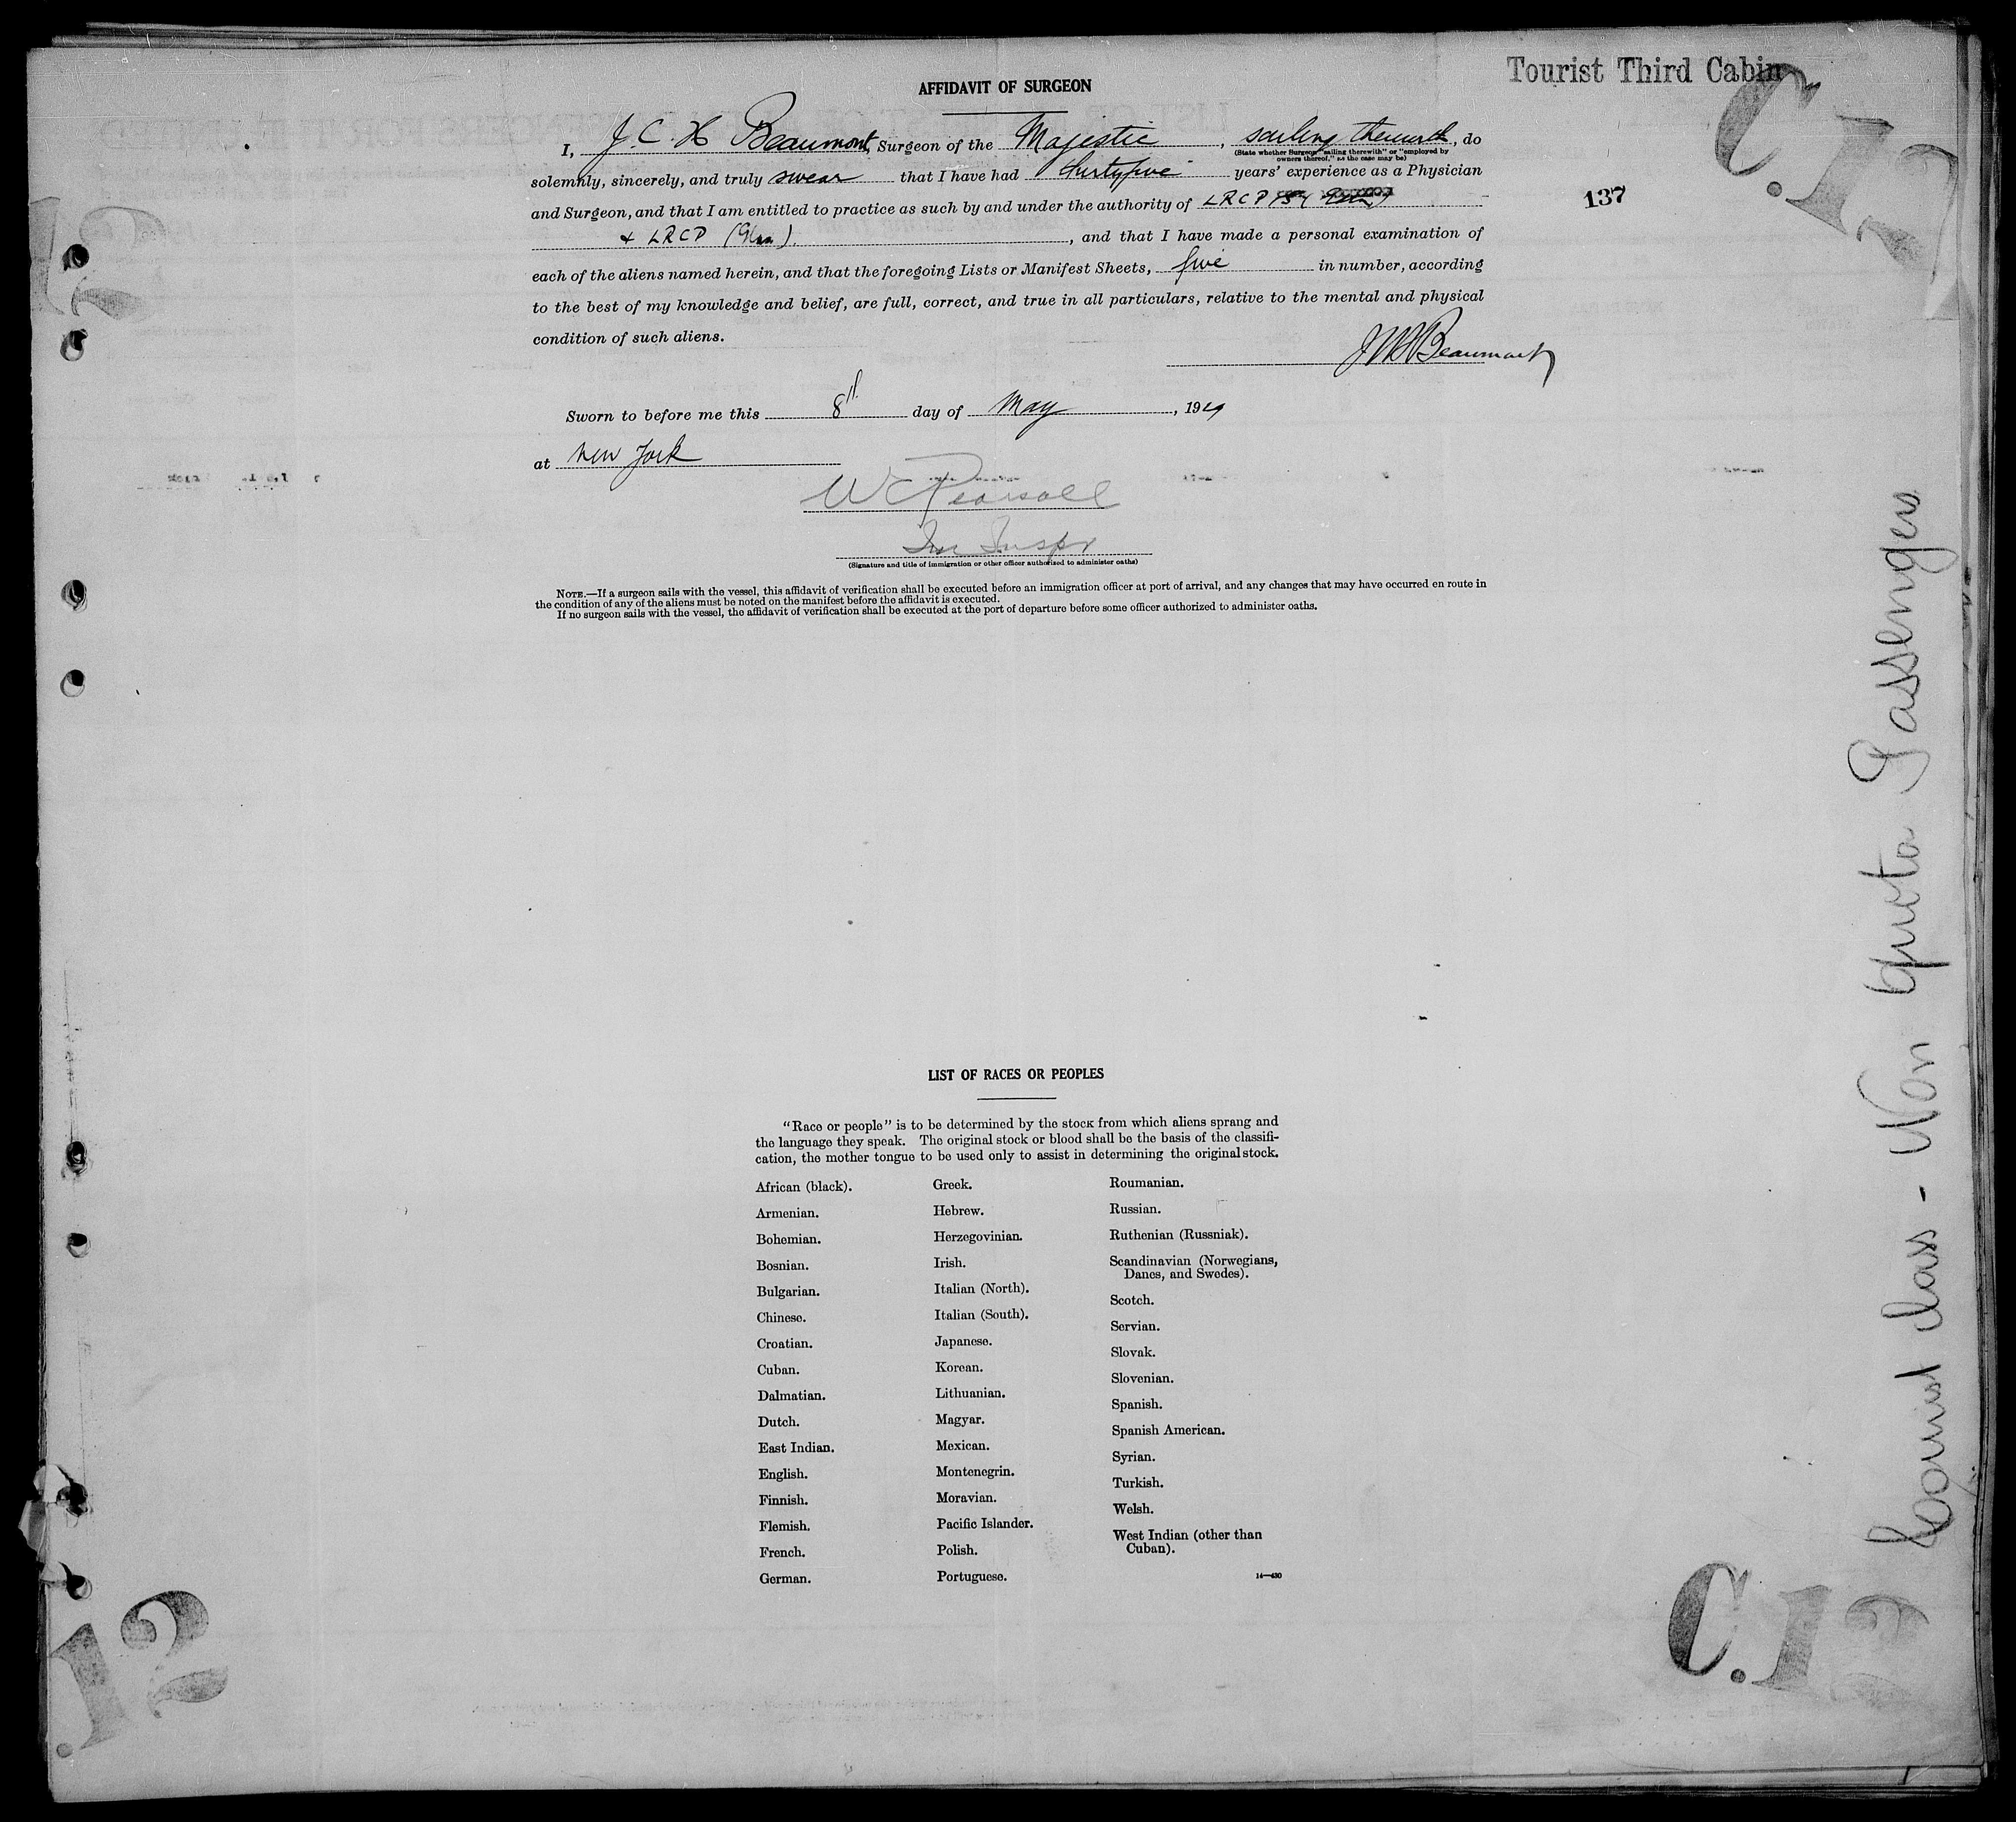 Tourist Third Cabin
C.12
137
AFFIDAVIT OF SURGEON
I, J. C. H Beaumont, Surgeon of the Majestic, sailing therewith, do
(State whether Surgeon "sailing therewith" or "employed by
owners thereof," as the case may be)
solemnly, sincerely, and truly swear that I have had thirtyfive years' experience as a Physician
and Surgeon, and that I am entitled to practice as such by and under the authority of LRCP
+ LRCP, and that I have made a personal examination of
each of the aliens named herein, and that the foregoing Lists or Manifest Sheets, five in number, according
to the best of my knowledge and belief, are full, correct, and true in all particulars, relative to the mental and physical
condition of such aliens.
Beaumont
Sworn to before me this 8th day of May, 1929
at New York
W C Pearsall
Im Inspr
(Signature and title of immigration or other officer authorized to administer oaths)
NOTE.—If a surgeon sails with the vessel, this affidavit of verification shall be executed before an immigration officer at port of arrival, and any changes that may have occurred en route in
the condition of any of the aliens must be noted on the manifest before the affidavit is executed.
If no surgeon sails with the vessel, the affidavit of verification shall be executed at the port of departure before some officer authorized to administer oaths.
Tourist Class - Non Quota Passengers
LIST OF RACES OR PEOPLES
"Race or people" is to be determined by the stock from which aliens sprang and
the language they speak. The original stock or blood shall be the basis of the classifi-
cation, the mother tongue to be used only to assist in determining the original stock.
African (black).
Armenian.
Bohemian.
Bosnian.
Bulgarian.
Chinese.
Croatian.
Cuban.
Dalmatian.
Dutch.
East Indian.
English.
Finnish.
Flemish.
French.
German.
Greek.
Hebrew.
Herzegovinian.
Irish.
Italian (North).
Italian (South).
Japanese.
Korean.
Lithuanian.
Magyar.
Mexican.
Montenegrin.
Moravian.
Pacific Islander.
Polish.
Portuguese.
Roumanian.
Russian.
Ruthenian (Russniak).
Scandinavian (Norwegians,
Danes, and Swedes).
Scotch.
Servian.
Slovak.
Slovenian.
Spanish.
Spanish American.
Syrian.
Turkish.
Welsh.
West Indian (other than
Cuban).
14—430
.12
C.12